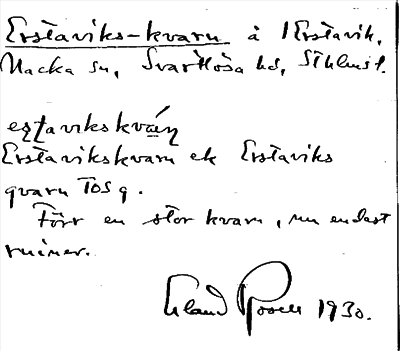 Erstaviks-kvarn å Erstavik,
Nacka sn, Svartlösa hd, Sthlms l.
eṣtavikskván̩
Erstavikskvarn ek Erstaviks
qvarn TOS 9.
Förr en stor kvarn, nu endast
ruiner.
Erland Rosell 1930.